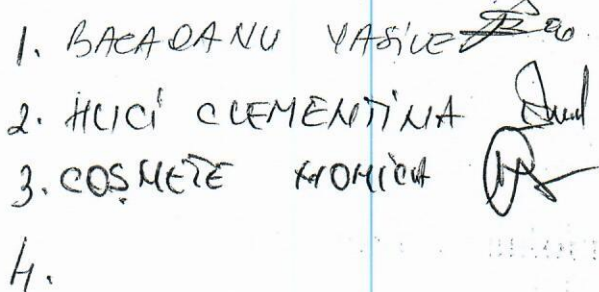 1. BACAOANU VASILE
2. HUCI CLEMENTINA
3. COSMETE MONICA
4.